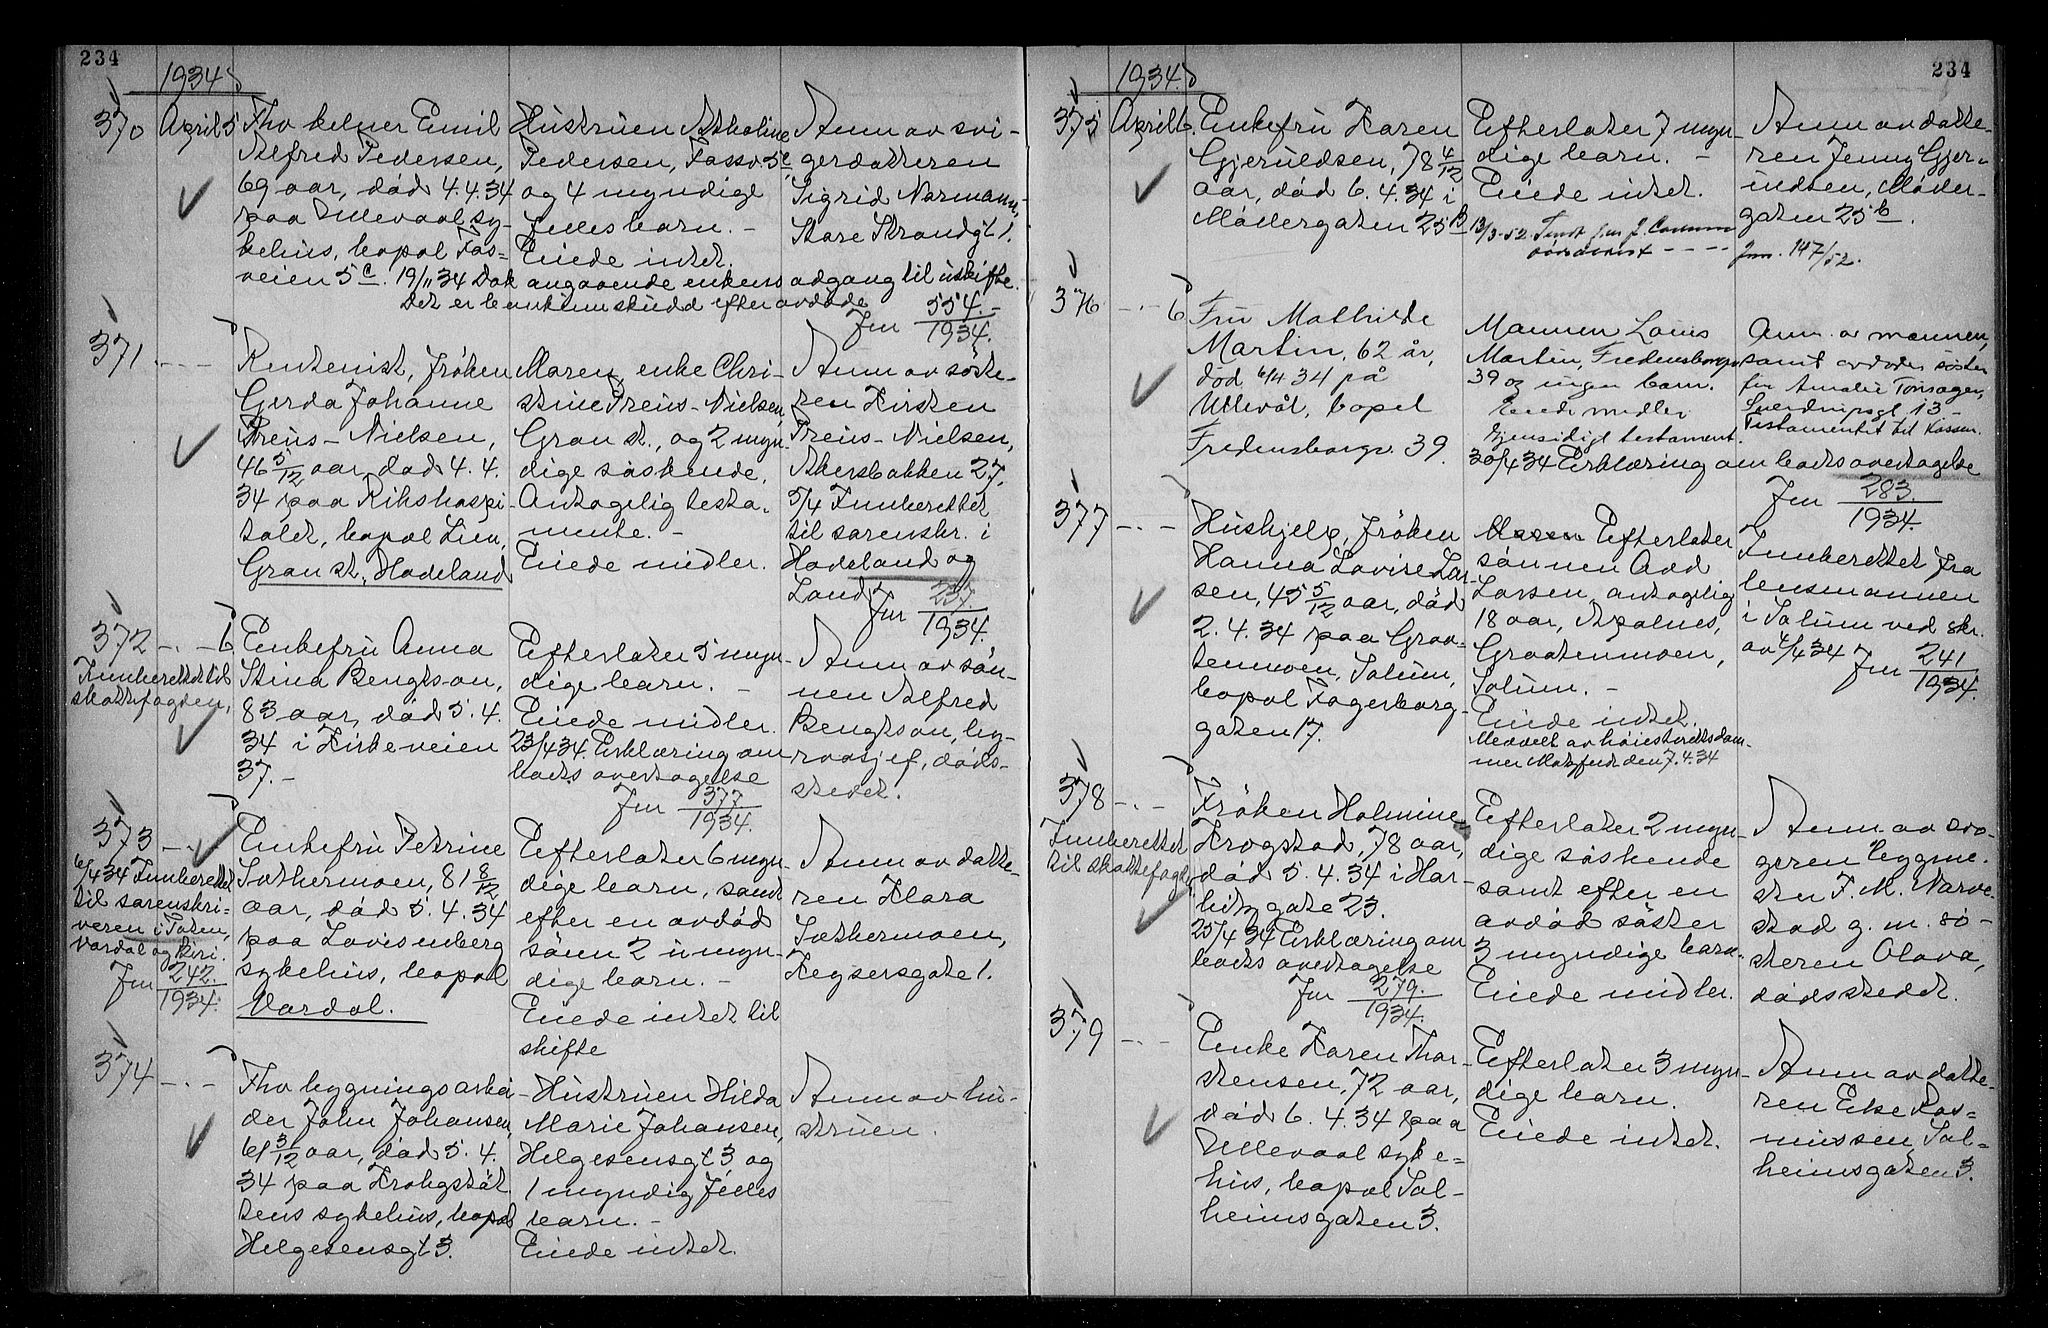 234
1934
370 April 5
Fhv kelner Emil
Alfred Pedersen,
69 aar, död 4.4.34
paa Ullevaal sy-
kehus, bopæl Fos-
veien 5c.
Hustruen
Pedersen, Fossv 5c,
og 4 myndige
fælles barn. -
Eiede intet.
Anm av svi-
gerdatteren
Sigrid Normann,
Store Strandgt 1.
19/11 34 Dok angaaende enkens adgang til uskifte.
Det er bankinnskudd efter avdöde
Jnr 554.-
1934.
371 - . -
Rentenist, fröken
Gerda Johanne
Preus-Nielsen,
46 5/12 aar, död 4.4.
34 paa Rikshospi-
talet, bopæl Lien,
Gran st, Hadeland
Moren, enke Chri-
stine Preus-Nielsen,
Gran st., og 2 myn-
dige söskende.
Antagelig testa-
mente. -
Eiede midler.
Anm av söste-
ren Kirsten
Preus-Nielsen,
Akersbakken 27.
5/4 Innberettet
til sorenskr. i
Hadeland og
Land
Jnr 237.
1934.
372 - . - 6
Innberettet til
skattefogden,
Enkefru Anna
Stina Bengtson,
83 aar, död 5.4.
34 i Kirkeveien
37. -
Efterlater 5 myn-
dige barn. -
Eiede midler.
23/4 34. Erklæring om
boets overtagelse
Jnr 377
1934.
Anm av sön-
nen Alfred
Bengtson, by-
raasjef, döds-
stedet.
373 - . -
6/4 34 Innberettet
til sorenskri-
veren i Toten,
Vardal og Biri.
Jnr 242.
1934.
Enkefru Petrine
Sæthermoen, 81 8/12
aar, död 5.4.34
paa Lovisenberg
sykehus, bopæl
Vardal.
Efterlater 6 myn-
dige barn, samt
efter en avdöd
sönn 2 umyn-
dige barn. -
Eiede intet til
skifte
Anm av datte-
ren Klara
Sæthermoen,
Keysersgate 1.
374 - . -
Fhv bygningsarbei-
der John Johansen,
61 3/12 aar, död 5.4.
34 paa Krohgstöt-
tens sykehus, bopæl
Helgesensgt 3.
Hustruen Hilda
Marie Johansen,
Helgesensgt 3 og
1 myndig fælles
barn. -
Eiede intet.
Anm av hu-
struen.
234
1934.
375 April 6.
Enkefru Karen
Gjeruldsen, 78 4/12
aar, död 6.4.34 i
Möllergaten 25 B
Efterlater 7 myn-
dige barn. -
Eiede intet.
13/3-52.
Jnr. 147/52.
Anm av datte-
ren Jenny Gjer-
uldsen, Möller-
gaten 25 b.
376 - . - 6
Fru Mathilde
Martin, 62 år,
död 6/4 34 på
Ullevål, bopel
Fredensborgv. 39.
Mannen Louis
Martin, Fredensborgv
39 og ingen barn.
Eiende midler.
Gjensidigt testament.
Anm. av mannen,
samt avdödes söster
fru Amalie Tonsager,
Sverdrupsgt. 13 -
Testamentet til Kassen.
30/4 34 Erklæring om boets overtagelse
Jnr 283.
1934.
377 - . -
Hushjelp, fröken
Hanna Lovise Lar-
sen, 45 5/12 aar, död
2.4.34 paa Graa-
tenmoen, Solum,
bopæl Fagerborg-
gaten 17.
Efterlater
sönnen Odd
Larsen, antagelig
18 aar,
Graatenmoen,
Solum. -
Eiede intet.
Meddelt av höiesterettsdom-
mer den 7.4.34
Innberettet fra
lensmannen
i Solum ved skr.
av 4/4 34
Jnr 241
1934.
378 - . -
Innberettet
til skattefogd.
Fröken Halmine
Krogstad, 78 aar,
död 5.4.34 i Har-
bitz gate 23.
25/4 34 Erklæring om
boets overtagelse
Jnr 279.
1934.
Efterlater 2 myn-
dige söskende
samt efter en
avdöd söster
3 myndige barn.
Eiede midler.
Anm av svo-
geren byggme-
ster F. M. Narve-
stad g. m. sö-
steren Olava,
dödsstedet.
379 - . -
Enke Karen Thor-
stensen, 72 aar,
död 6.4.34 paa
Ullevaal syke-
hus, bopæl Sol-
heimsgaten 3.
Efterlater 3 myn-
dige barn.
Eiede intet.
Anm av datte-
ren Elise Ras-
mussen, Sol-
heimsgaten 3.